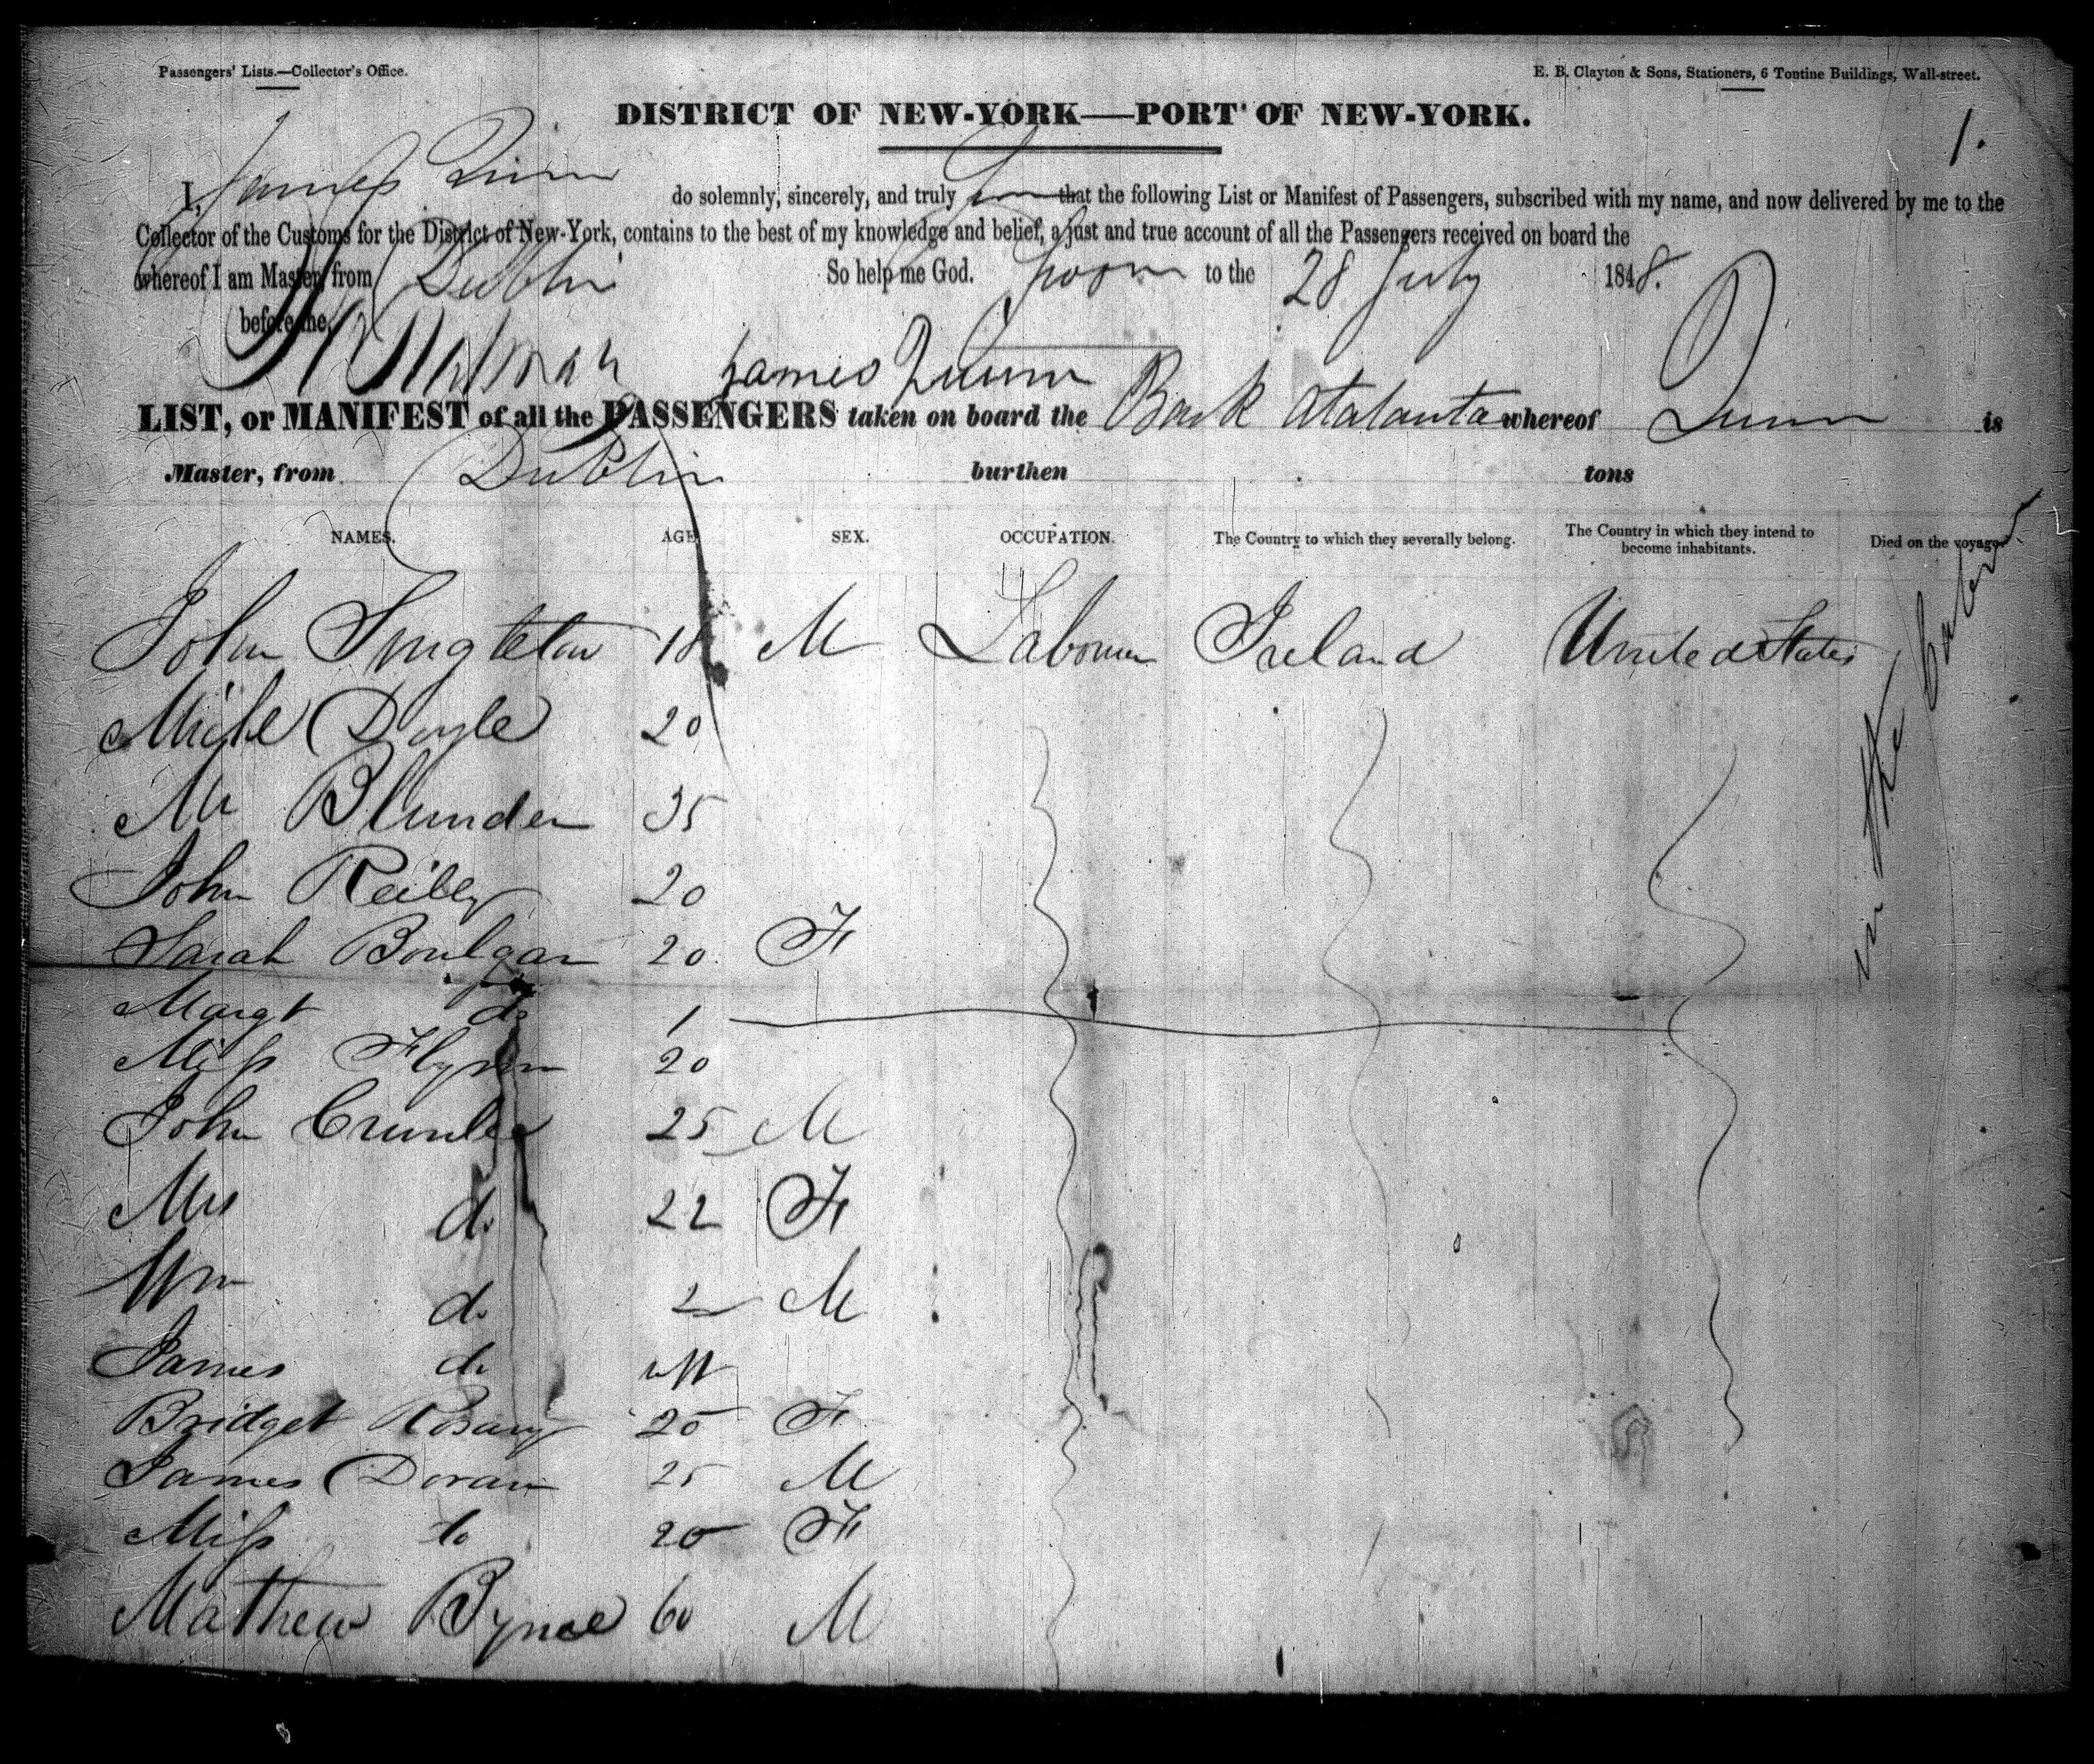 Passengers' Lists.—Collector's Office.
E. B. Clayton & Sons, Stationers, 6 Tontine Buildings, Wall-street.
DISTRICT OF NEW-YORK—PORT OF NEW-YORK.
1.
I, James Quinn do solemnly, sincerely, and truly that the following List or Manifest of Passengers, subscribed with my name, and now delivered by me to the
Collector of the Customs for the District of New-York, contains to the best of my knowledge and belief, a just and true account of all the Passengers received on board the
whereof I am Master, from Dublin So help me God. to the 28 July 1848.
before me,
James Quinn
LIST, or MANIFEST of all the PASSENGERS taken on board the Bark Atalanta whereof Quinn is
Master, from Dublin burthen tons
NAMES. AGE SEX. OCCUPATION. The Country to which they severally belong. The Country in which they intend to become inhabitants. Died on the voyage
John Singleton 18 M Labourer Ireland United States
Doyle 20
Mr Blunden 35
John Reilly 20
Sarah 20 F
Margt do 1
Miss Flynn 20
John 25 M
Mrs do 22 F
Wm do 2 M
James do inft
Bridget 20 F
James Doran 25 M
Miss do 20 F
Mathew Byrne 60 M
in the